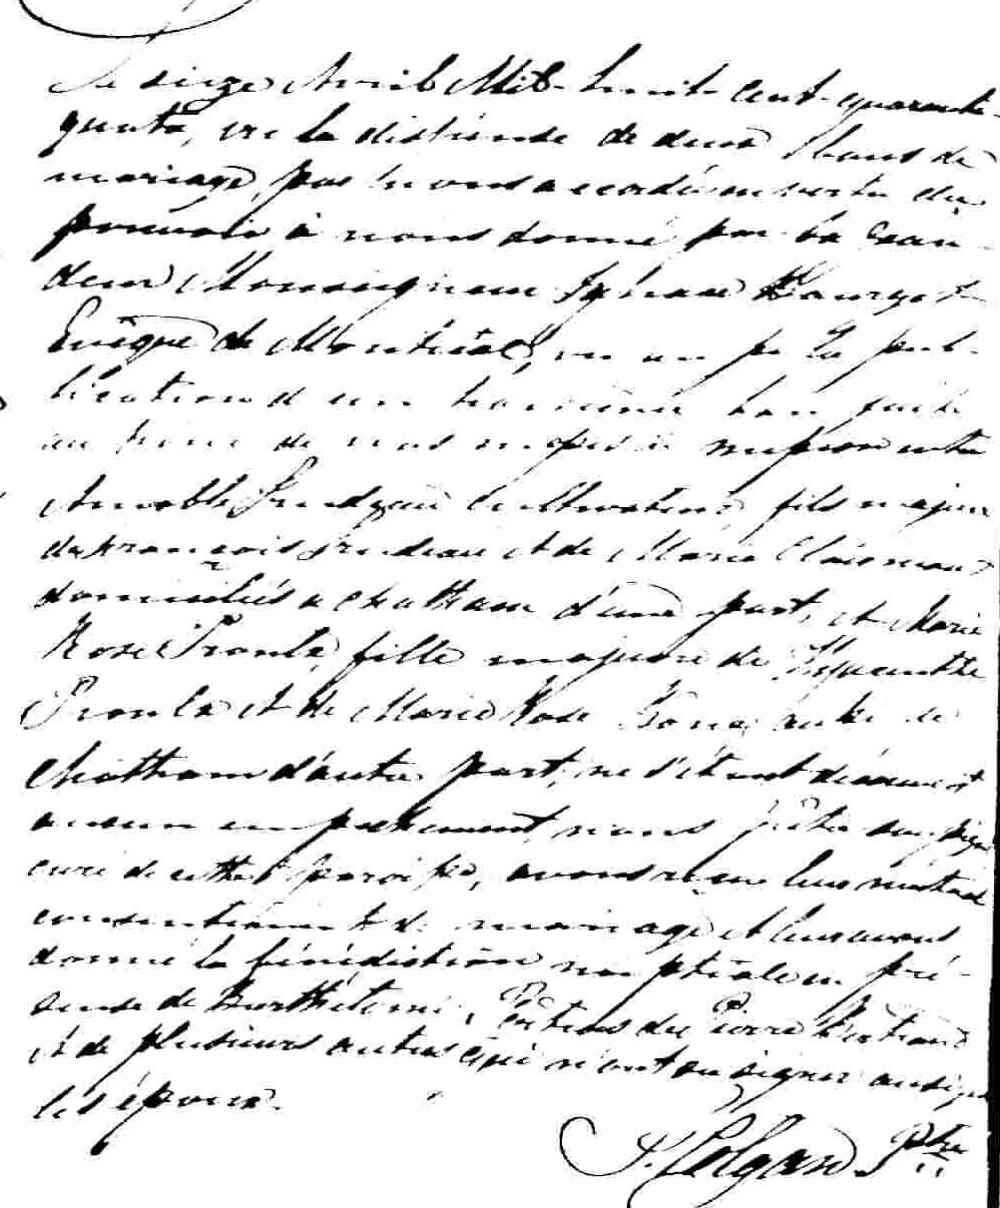 Le seize Avril Mil-huit-cent-quarante-
quatre, vu la dispense de deux bans de
mariage par nous accordée en vertu du
pouvoir à nous donné par Sa Gran-
deur Monseigneur Ignace Bourget
Evêque de Montréal, vu aussi la pub-
lication d'un troisième ban faite
au prône de nos messes entre
Amable Trudeau Cultivateur, fils majeur
de François Trudeau et de Marie
domiciliés à Chatham d'une part, et Marie
Rose Proulx, fille majeure de Hyacinthe
Proulx et de Marie Rose aussi de
Chatham d'autre part, ne s'étant découvert
aucun empêchement, nous prêtre soussigné
curé de cette paroisse, avons reçu leur mutuel
consentement de mariage et leur avons
donné la bénédiction nuptiale en pré-
sence de Barthélemi, de Pierre Bertrand
et de plusieurs autres qui n'ont su signer ainsi que
les époux.
J. Colgan Ptre